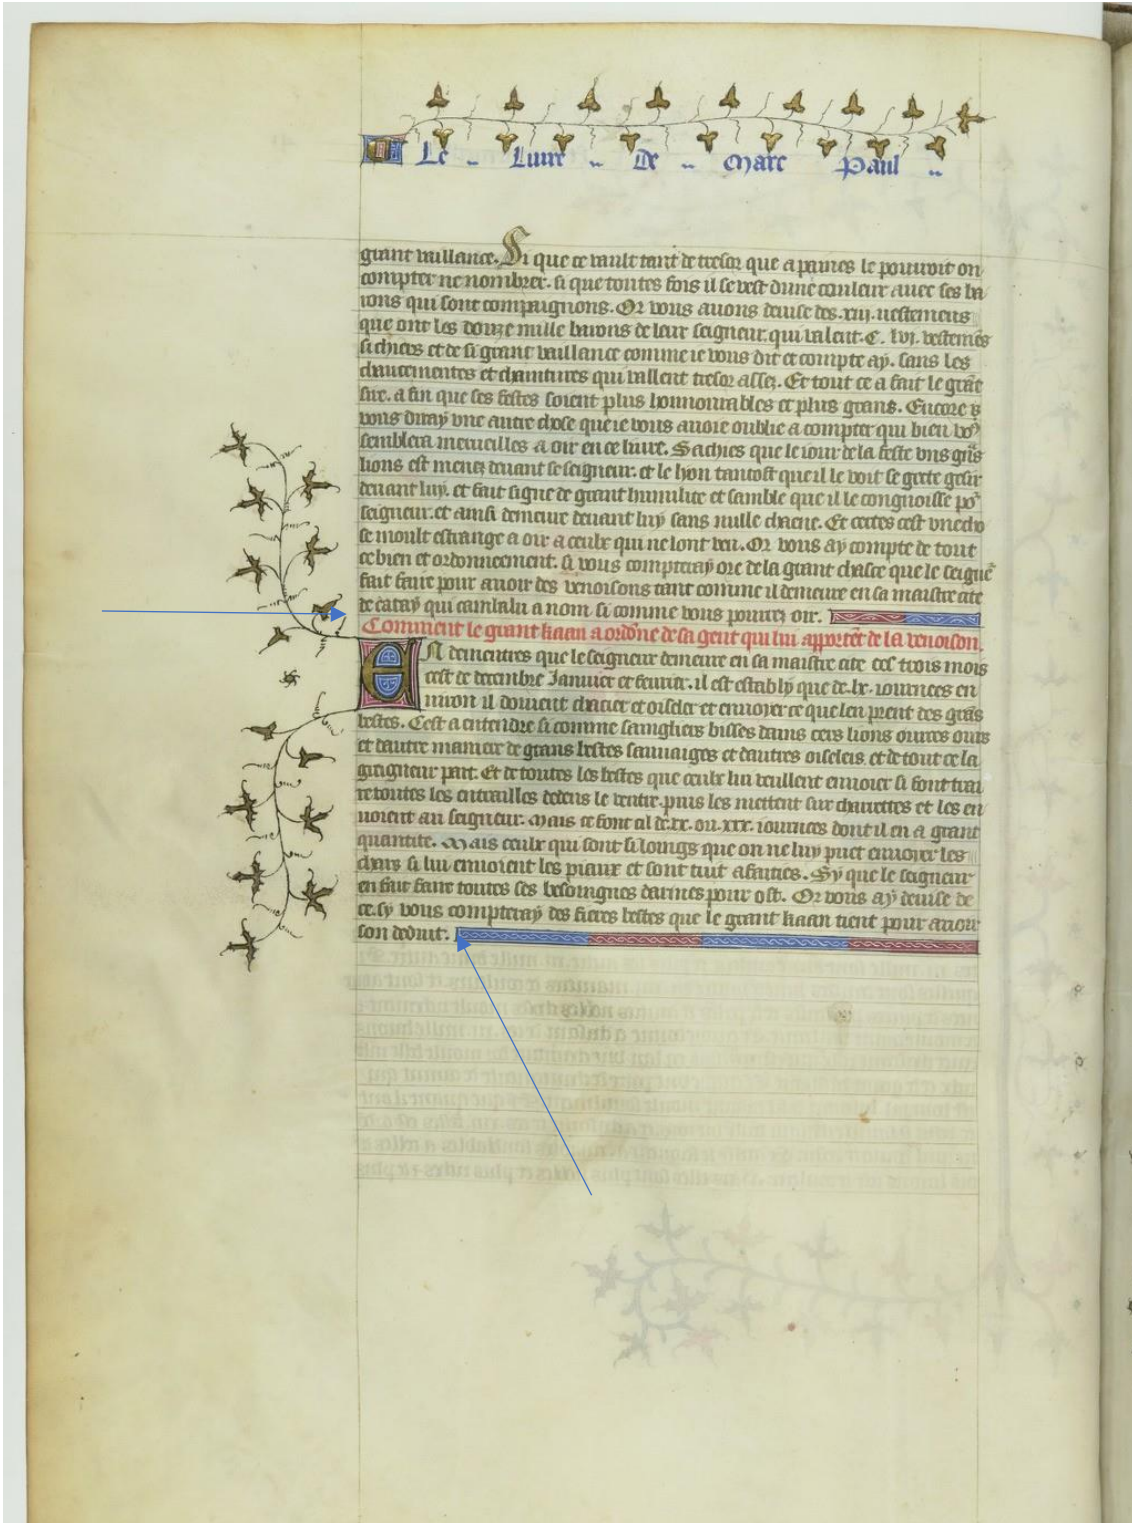 Le .. Liure .. De .. Marc Paul ..
grant vaillance. Si que ce vault tant de tresor que a paines le pouuoit on
compter ne nombrer. si que toutes fois il se vest dune couleur auec ses ba
rons qui sont compaignons. Or vous auons deuise des .xiij. uestemens
que ont les douze mille barons de leur seigneur. qui valent .C. lvj. vestemēs
si chiers et de si grant vaillance comme ie vous dit et compte ay. sans les
chaucementes et chaintures qui vallent tresor assez. Et tout ce a fait le grāt
sire. a fin que ses festes soient plus honnourables et plus grans. Encore
vous diray vne autre chose que ie vous auoie oublie a compter qui bien vo9
semblera merueilles a oir en ce liure. Sachies que le iour de la feste vns grās
lions est menez deuant le seigneur. et le lyon tantost que il le voit se giete gesir
deuant luy. et fait signe de grant humilite et samble que il le congnoisse po
seigneur. et ainsi demeure deuant luy sans nulle chaene. Et certes cest vne cho
se moult estrange a oir a ceulx qui ne lont veu. Or vous ay compte de tout
ce bien et ordonneement. si vous compteray ore de la grant chasce que le seigne
fait faire pour auoir des venoisons tant comme il demeure en sa maistre cite
de catay qui cambalu a nom. si comme vous pourrez oir.
Comment le grant kaan a ordōne de sa gent qui lui apportēt de la venoison.
EN dementres que le seigneur demeure en sa maistre cite ces trois mois
cest de decembre Januier et feurier. il est estably que de .lx. iournees en
uiron il doiuent chacier et oiseler et enuoyer ce que len prent des grās
bestes. Cest a entendre si comme saingliers bisses dains cers lions ources ours
et dautre maniere de grans bestes sauuaiges et dautres oiseleis. et de tout ce la
greigneur part. Et de toutes les bestes que ceulx lui veullent enuoier si font trai
re toutes les entrailles dedens le ventre. puis les mettent sur charettes et les en
uoient au seigneur. Mais ce font cil de .xx. ou .xxx. iournees dont il en a grant
quantite. Mais ceulx qui sont si loings que on ne luy puet enuoyer les
chars si lui enuoient les piaux et sont tuit afaities. Sy que le seigneur
en fait faire toutes ses besoingnes darmes pour ost. Or vous ay deuise de
ce. sy vous compteray des fieres bestes que le grant kaan tient pour auoir
son deduit.